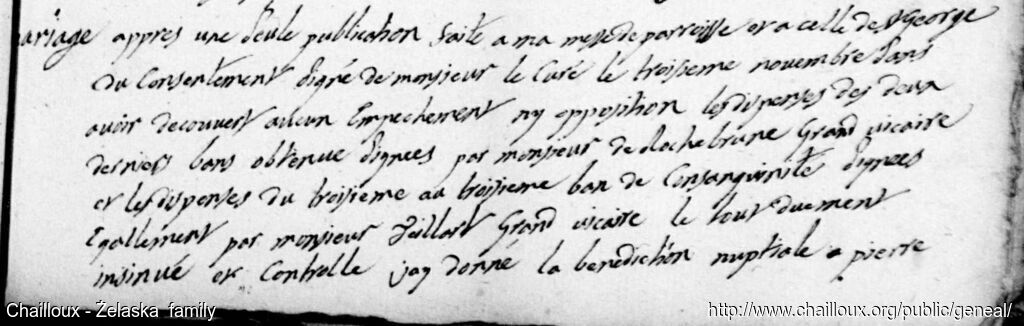 mariage appres une seule publication faite a ma messe de parroisse et a celle de St George
du Consentement signé de monsieur le Curé le troisieme novembre sans
avoir decouvert aucun Empechement ny opposition les dispenses des deux
derniers bans obtenue signees par monsieur de Rochebrune Grand vicaire
et les dispenses du troisieme au troisieme ban de Consanguinité signees
Egallement par monsieur Grand vicaire le tout duement
insinué et Controllé jay donné la benediction nuptiale a pierre
Chailloux - Żelaska family
http://www.chailloux.org/public/geneal/